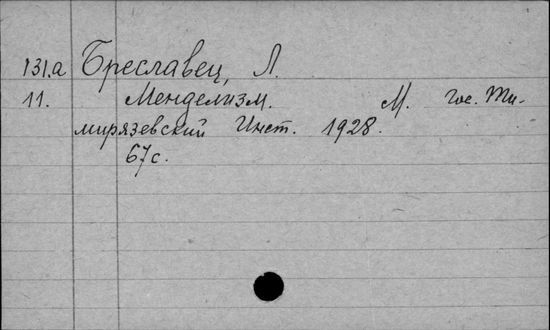 131.а Бреславец, Л.
11. Менделизм. М. Гос. Ти-
мирязевский Инст. 1928.
67 с.